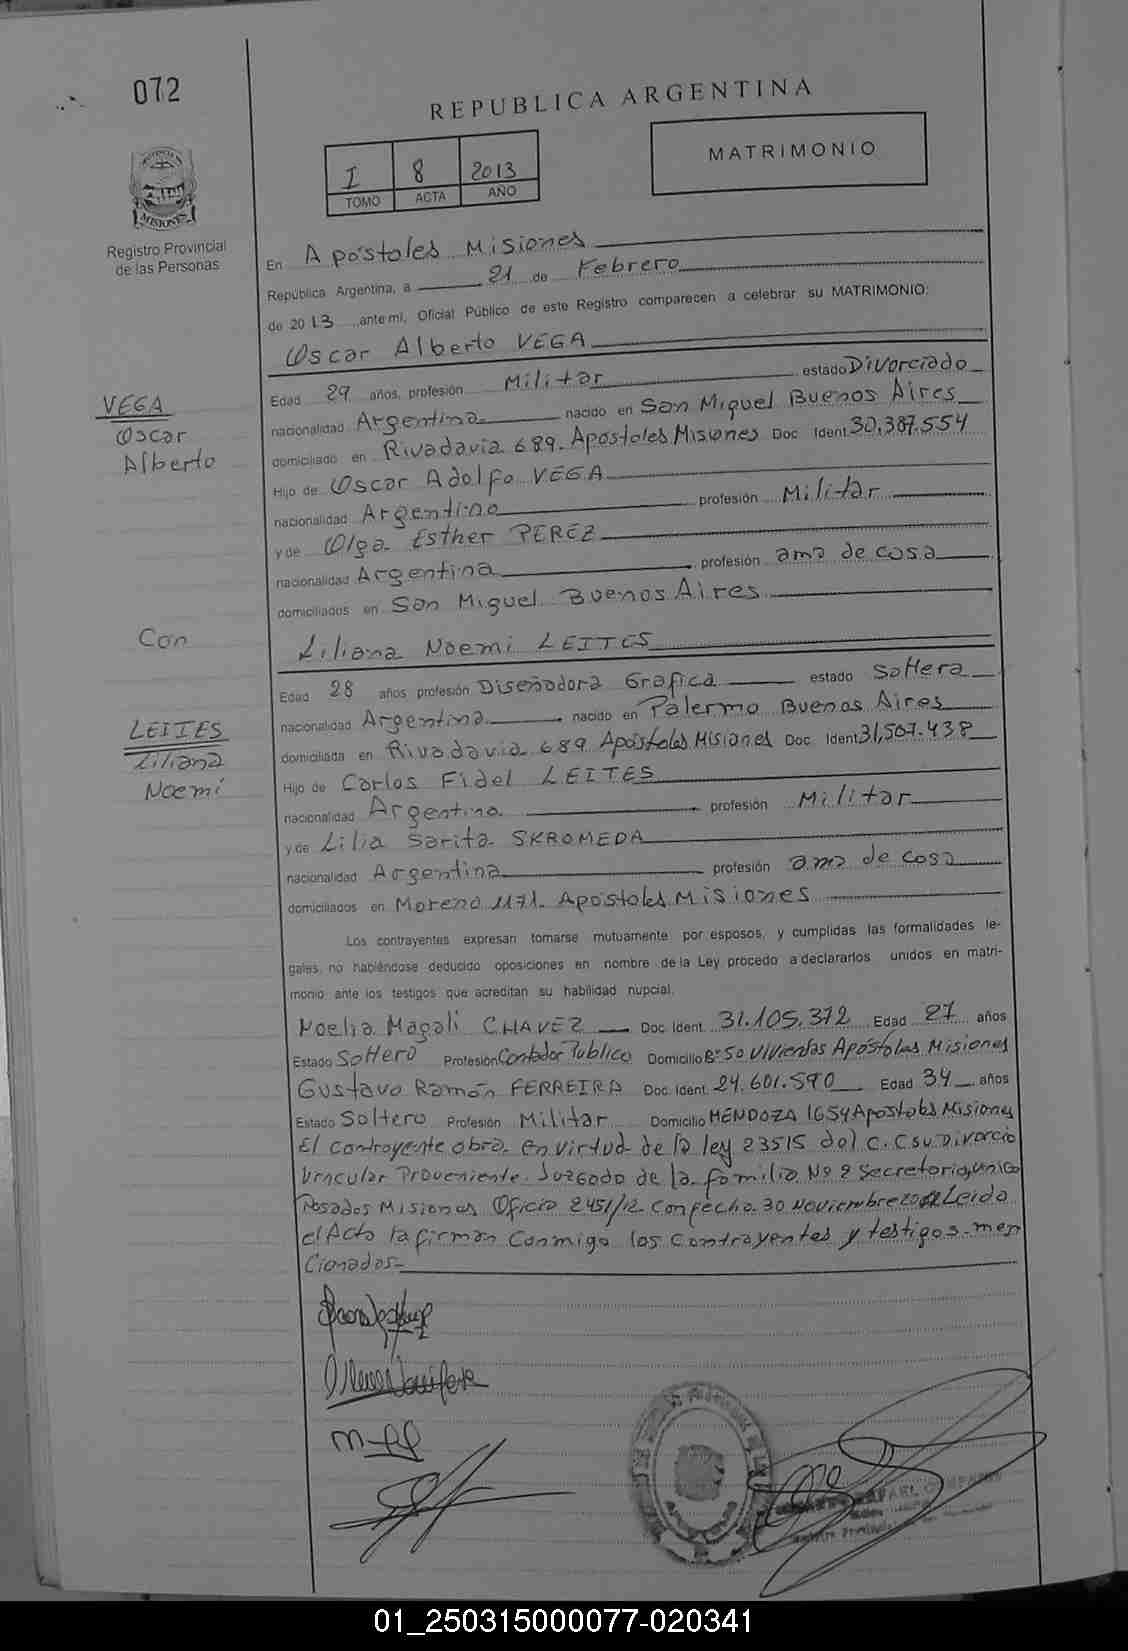 072
REPUBLICA ARGENTINA
I 8 2013
TOMO ACTA AÑO
MATRIMONIO
PROVINCIA DE
MISIONES
Registro Provincial
de las Personas
En Apóstoles Misiones
República Argentina, a 21 de Febrero
de 2013 ante mí, Oficial Público de este Registro comparecen a celebrar su MATRIMONIO:
Oscar Alberto VEGA
VEGA
Oscar
Alberto
Edad 29 años, profesión Militar estado Divorciado
nacionalidad Argentina nacido en San Miguel Buenos Aires
domiciliado en Rivadavia 689. Apostoles Misiones Doc Ident. 30.387.554
Hijo de Oscar Adolfo VEGA
nacionalidad Argentino profesión Militar
y de Olga Esther PEREZ
nacionalidad Argentina profesión ama de casa
domiciliados en San Miguel Buenos Aires
Con
Liliana Noemi LEITES
LEITES
Liliana
Noemi
Edad 28 años profesión Diseñadora Grafica estado Soltera
nacionalidad Argentina nacido en Palermo Buenos Aires
domiciliada en Rivadavia 689 Apóstoles Misiones Doc Ident. 31,507.438
Hijo de Carlos Fidel LEITES
nacionalidad Argentino profesión Militar
y de Lilia Sarita SKROMEDA
nacionalidad Argentina profesión ama de casa
domiciliados en Moreno 1171. Apóstoles Misiones
Los contrayentes expresan tomarse mutuamente por esposos, y cumplidas las formalidades le-
gales, no habiéndose deducido oposiciones en nombre de la Ley procedo a declararlos unidos en matri-
monio ante los testigos que acreditan su habilidad nupcial.
Noelia Magali CHAVEZ Doc. Ident. 31.105.372 Edad 27 años
Estado Soltero Profesión Contador Publico Domicilio B° 50 Viviendas Apóstoles Misiones
Gustavo Ramón FERREIRA Doc. Ident. 24.601.590 Edad 34 años
Estado Soltero Profesión Militar Domicilio MENDOZA 1654 Apostoles Misiones
El contrayente obra en virtud de la ley 23515 del C. C su Divorcio
Vincular Proveniente Juzgado de la familia No 2 Secretaria unica
Posadas Misiones Oficio 2451/12 Con fecha 30 Noviembre 2012 Leida
el Acta la firman Conmigo los Contrayentes y testigos men
Cionados-
01_250315000077-020341